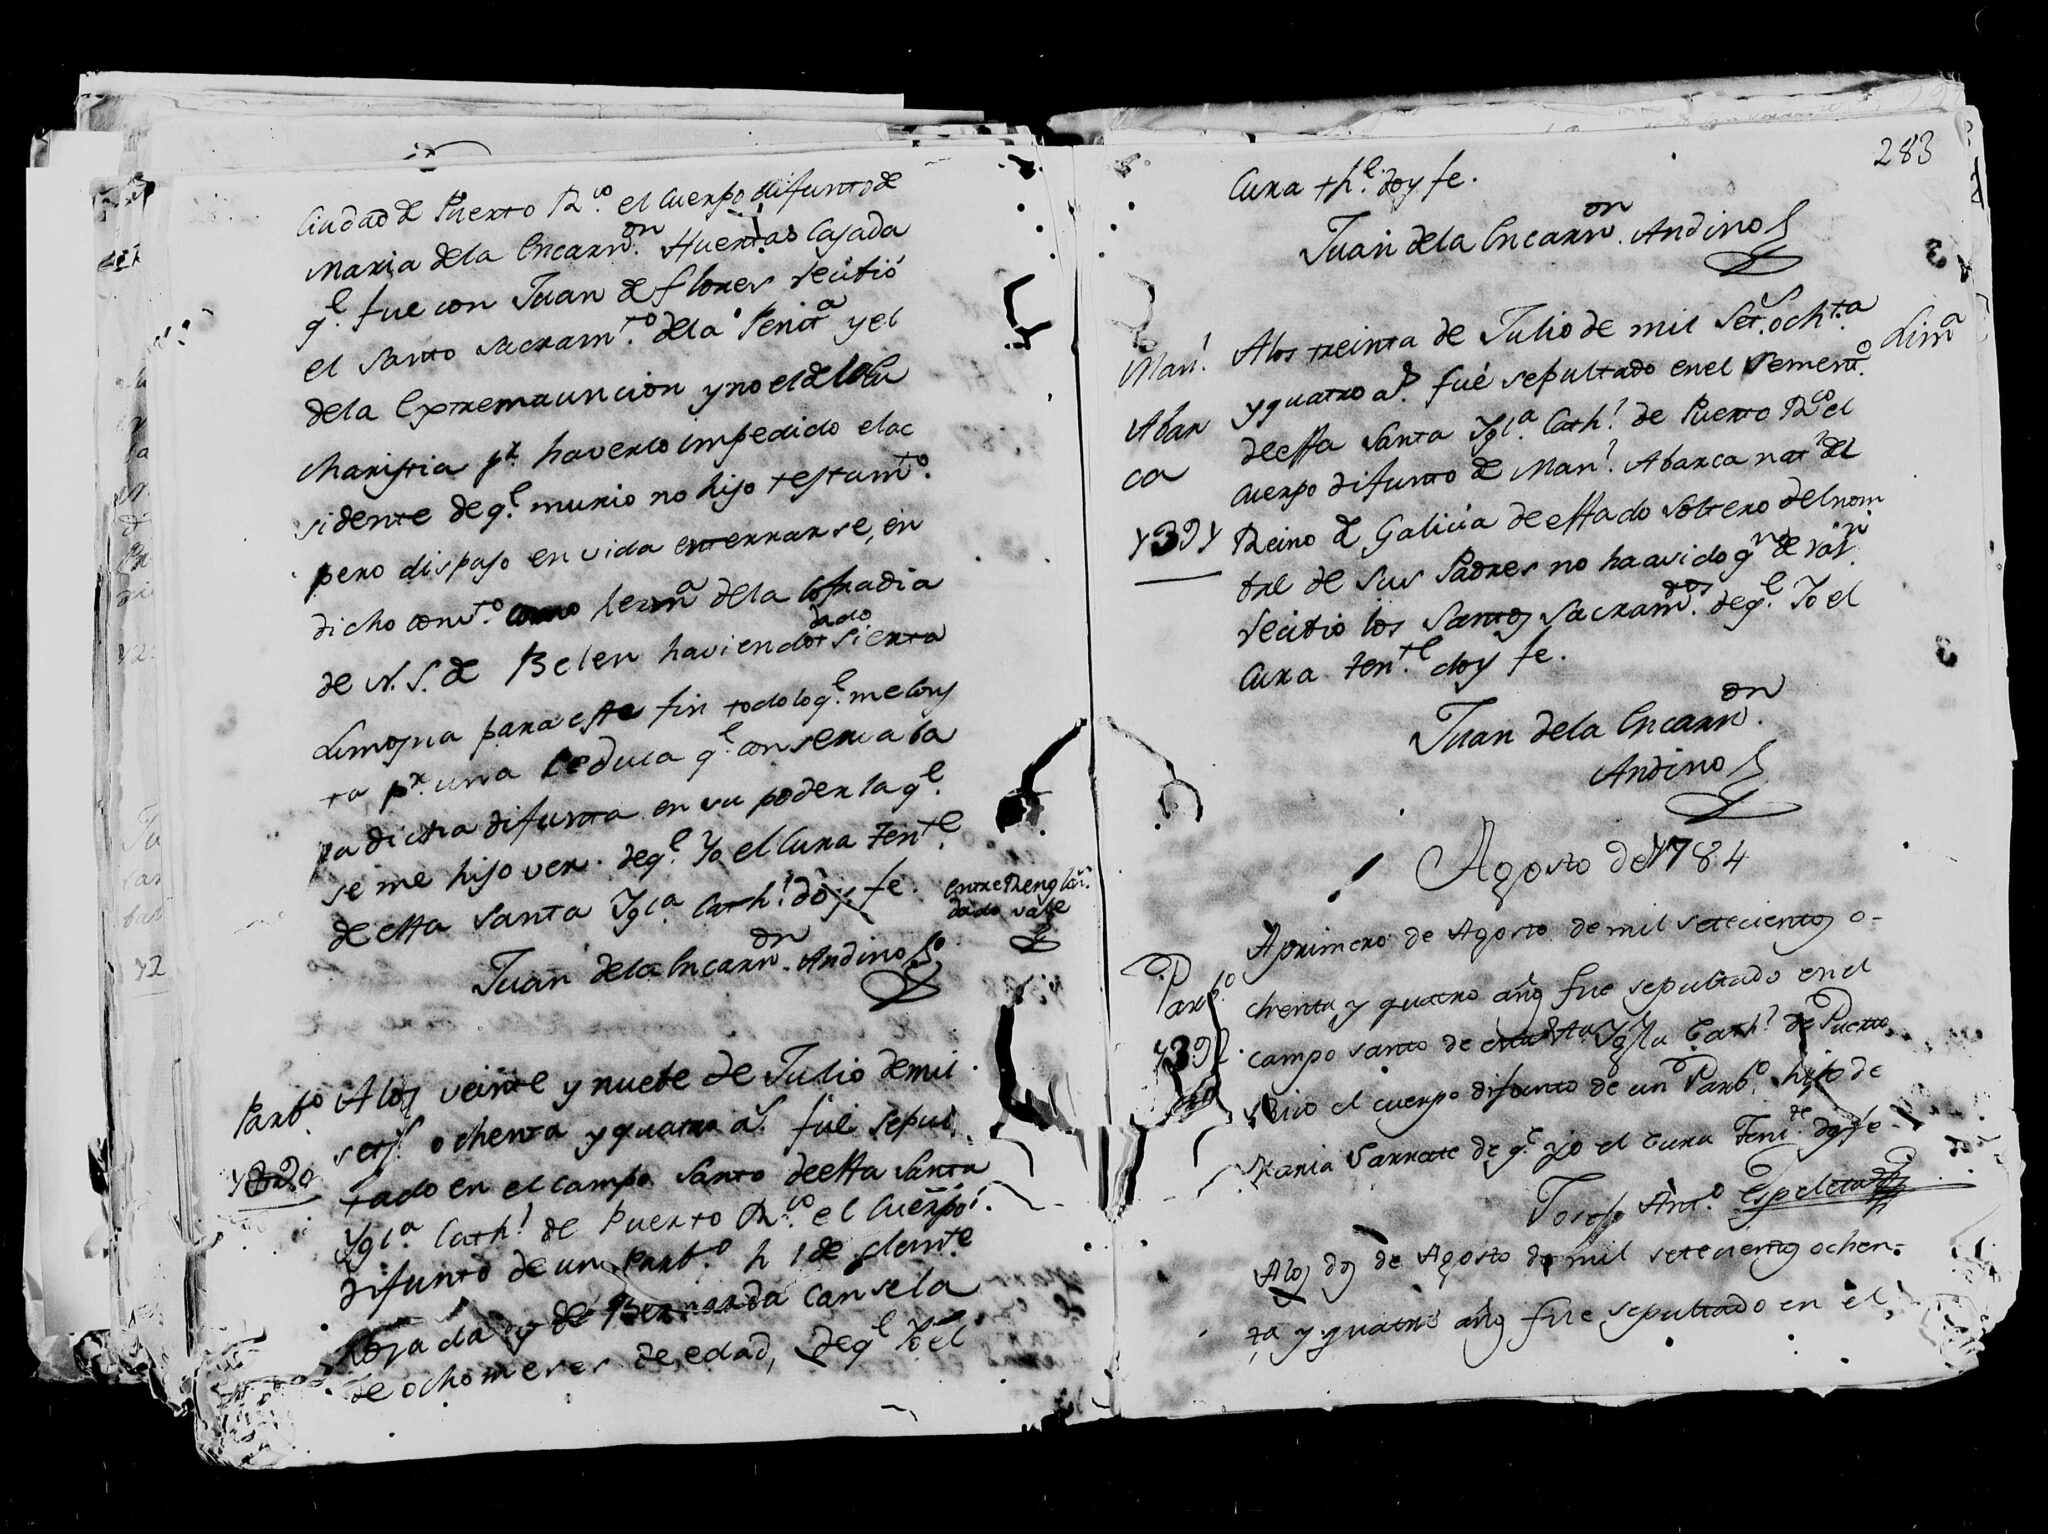 Ciudad de Puerto Rco. el Cuerpo difunto de
Maria de la Encarnon. Huertas Casada
qe. fue con Juan de flores recivió
el Santo Sacramto. de la Penita y el
de la Extremauncion y no el de la Eu
charistia pr. haverlo impedido el ac
sidente de qe. murio no hiso testamto.
pero dispuso en vida enterrarse, en
dicho convto. como herma de la Cofradia
de N. S. de Belen haviendo dado sierta
Limosna para este fin todo lo qe. me cons
ta pr. una Cedula qe. conservaba
la dicha difunta en su poder la qe.
se me hiso ver. de qe. Yo el Cura Tente.
de esta Santa Ygla. Cathl. doy fe.
entre Renglon.
dado vale
Juan de la Encarnon. Andino
Parbo.
A los veinte y nuebe de Julio de mil
sets. ochenta y quatro as. fué sepul
tado en el campo Santo de esta Santa
Ygla. Cathl. de Puerto Rco. el Cuerpo
difunto de un Parbo. h l de Clemte
Losada y de Bernarda Cansela
de ocho meses de edad, de qe. Yo el
283
Cura the. doy fe.
Juan de la Encarnon. Andino
Manl.
Abar
ca
1391
A los treinta de Julio de mil Set. ochta
Lima
y quatro as. fué sepultado en el Sementо.
de esta Santa Ygla. Cathl. de Puerto Rco el
Cuerpo difunto de Manl. Abarca natl del
Reino de Galicia de estado Soltero del nom
bre de sus Padres no ha avido qn de rasn.
recivio los Santos Sacramdos. de qe. Yo el
Cura tente. doy fe.
Juan de la Encarnon.
Andino
Agosto de 1784
Parbo.
1392
A primero de Agosto de mil setecientos o-
chenta y quatro años fue sepultado en el
campo santo de esta Sta Ygla Cathl. de Puerto
Rico el cuerpo difunto de un Parbo. hijo de
Maria Sarrate de qe. yo el Cura Tente. doy fe.
Josefe Anto. Espeleta
A los dos de Agosto de mil setecientos ochen-
ta y quatro años fue sepultado en el